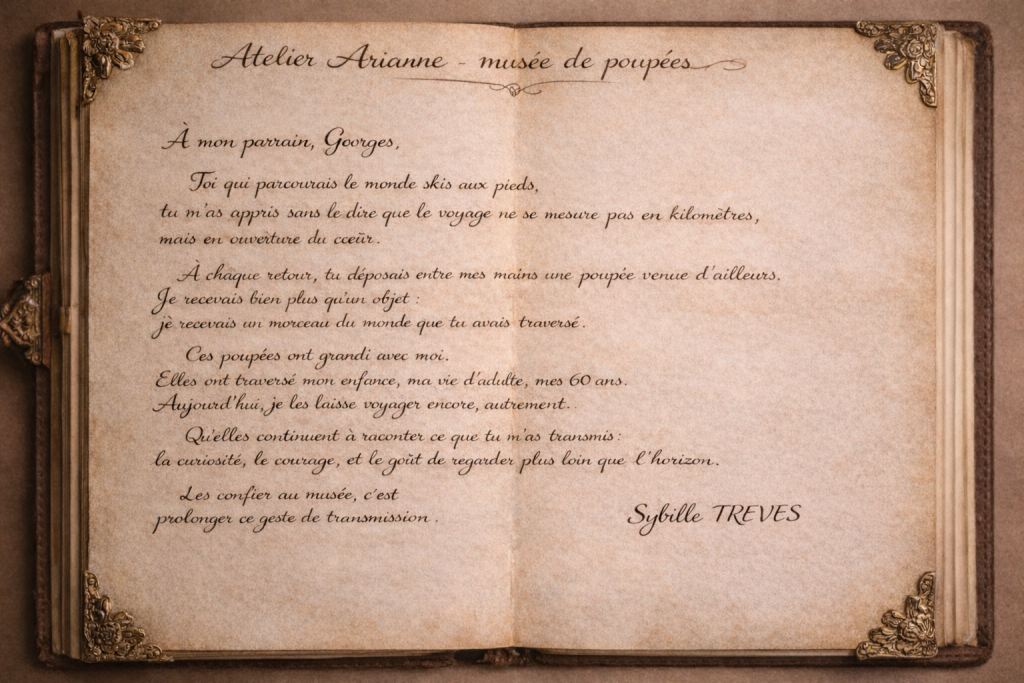 Atelier Arianne - musée de poupées
À mon parrain, Georges,
Toi qui parcourais le monde skis aux pieds,
tu m'as appris sans le dire que le voyage ne se mesure pas en kilomètres,
mais en ouverture du cœur.
À chaque retour, tu déposais entre mes mains une poupée venue d'ailleurs.
Je recevais bien plus qu'un objet :
je recevais un morceau du monde que tu avais traversé.
Ces poupées ont grandi avec moi.
Elles ont traversé mon enfance, ma vie d'adulte, mes 60 ans.
Aujourd'hui, je les laisse voyager encore, autrement..
Qu'elles continuent à raconter ce que tu m'as transmis :
la curiosité, le courage, et le goût de regarder plus loin que l'horizon.
Les confier au musée, c'est
prolonger ce geste de transmission.
Sybille TREVES